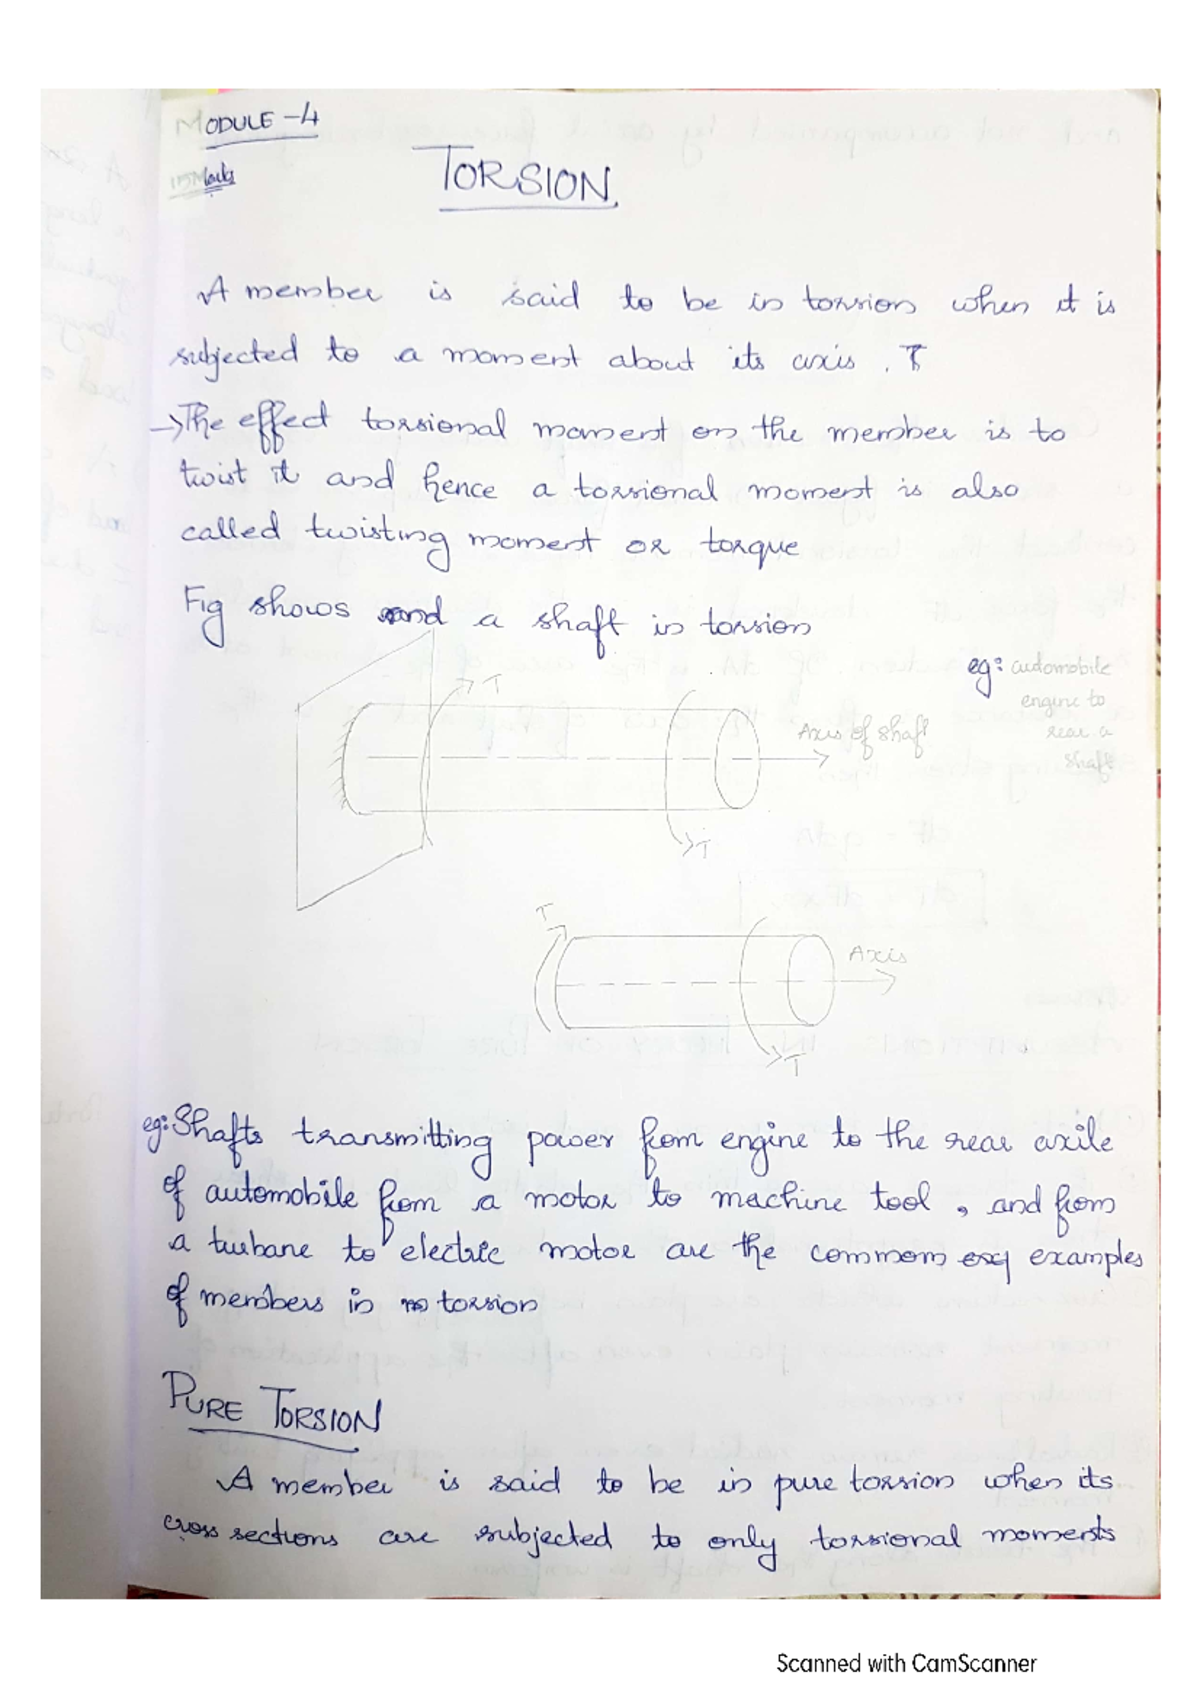 MODULE -4
15Marks
TORSION.
A member is said to be in torsion when it is
subjected to a moment about its axis. T
→The effect torsional moment on the member is to
twist it and hence a torsional moment is also
called twisting moment or torque
Fig shows a shaft in torsion
eg: automobile
engine to
rear a
shaft
T
Axis of shaft
T
T
Axis
T
eg: Shafts transmitting power from engine to the rear axile
of automobile from a motor to machine tool, and from
a turbane to electric motor are the commom examples
of members in torsion
PURE TORSION
A member is said to be in pure torsion when its
cross sections are subjected to only torsional moments
Scanned with CamScanner